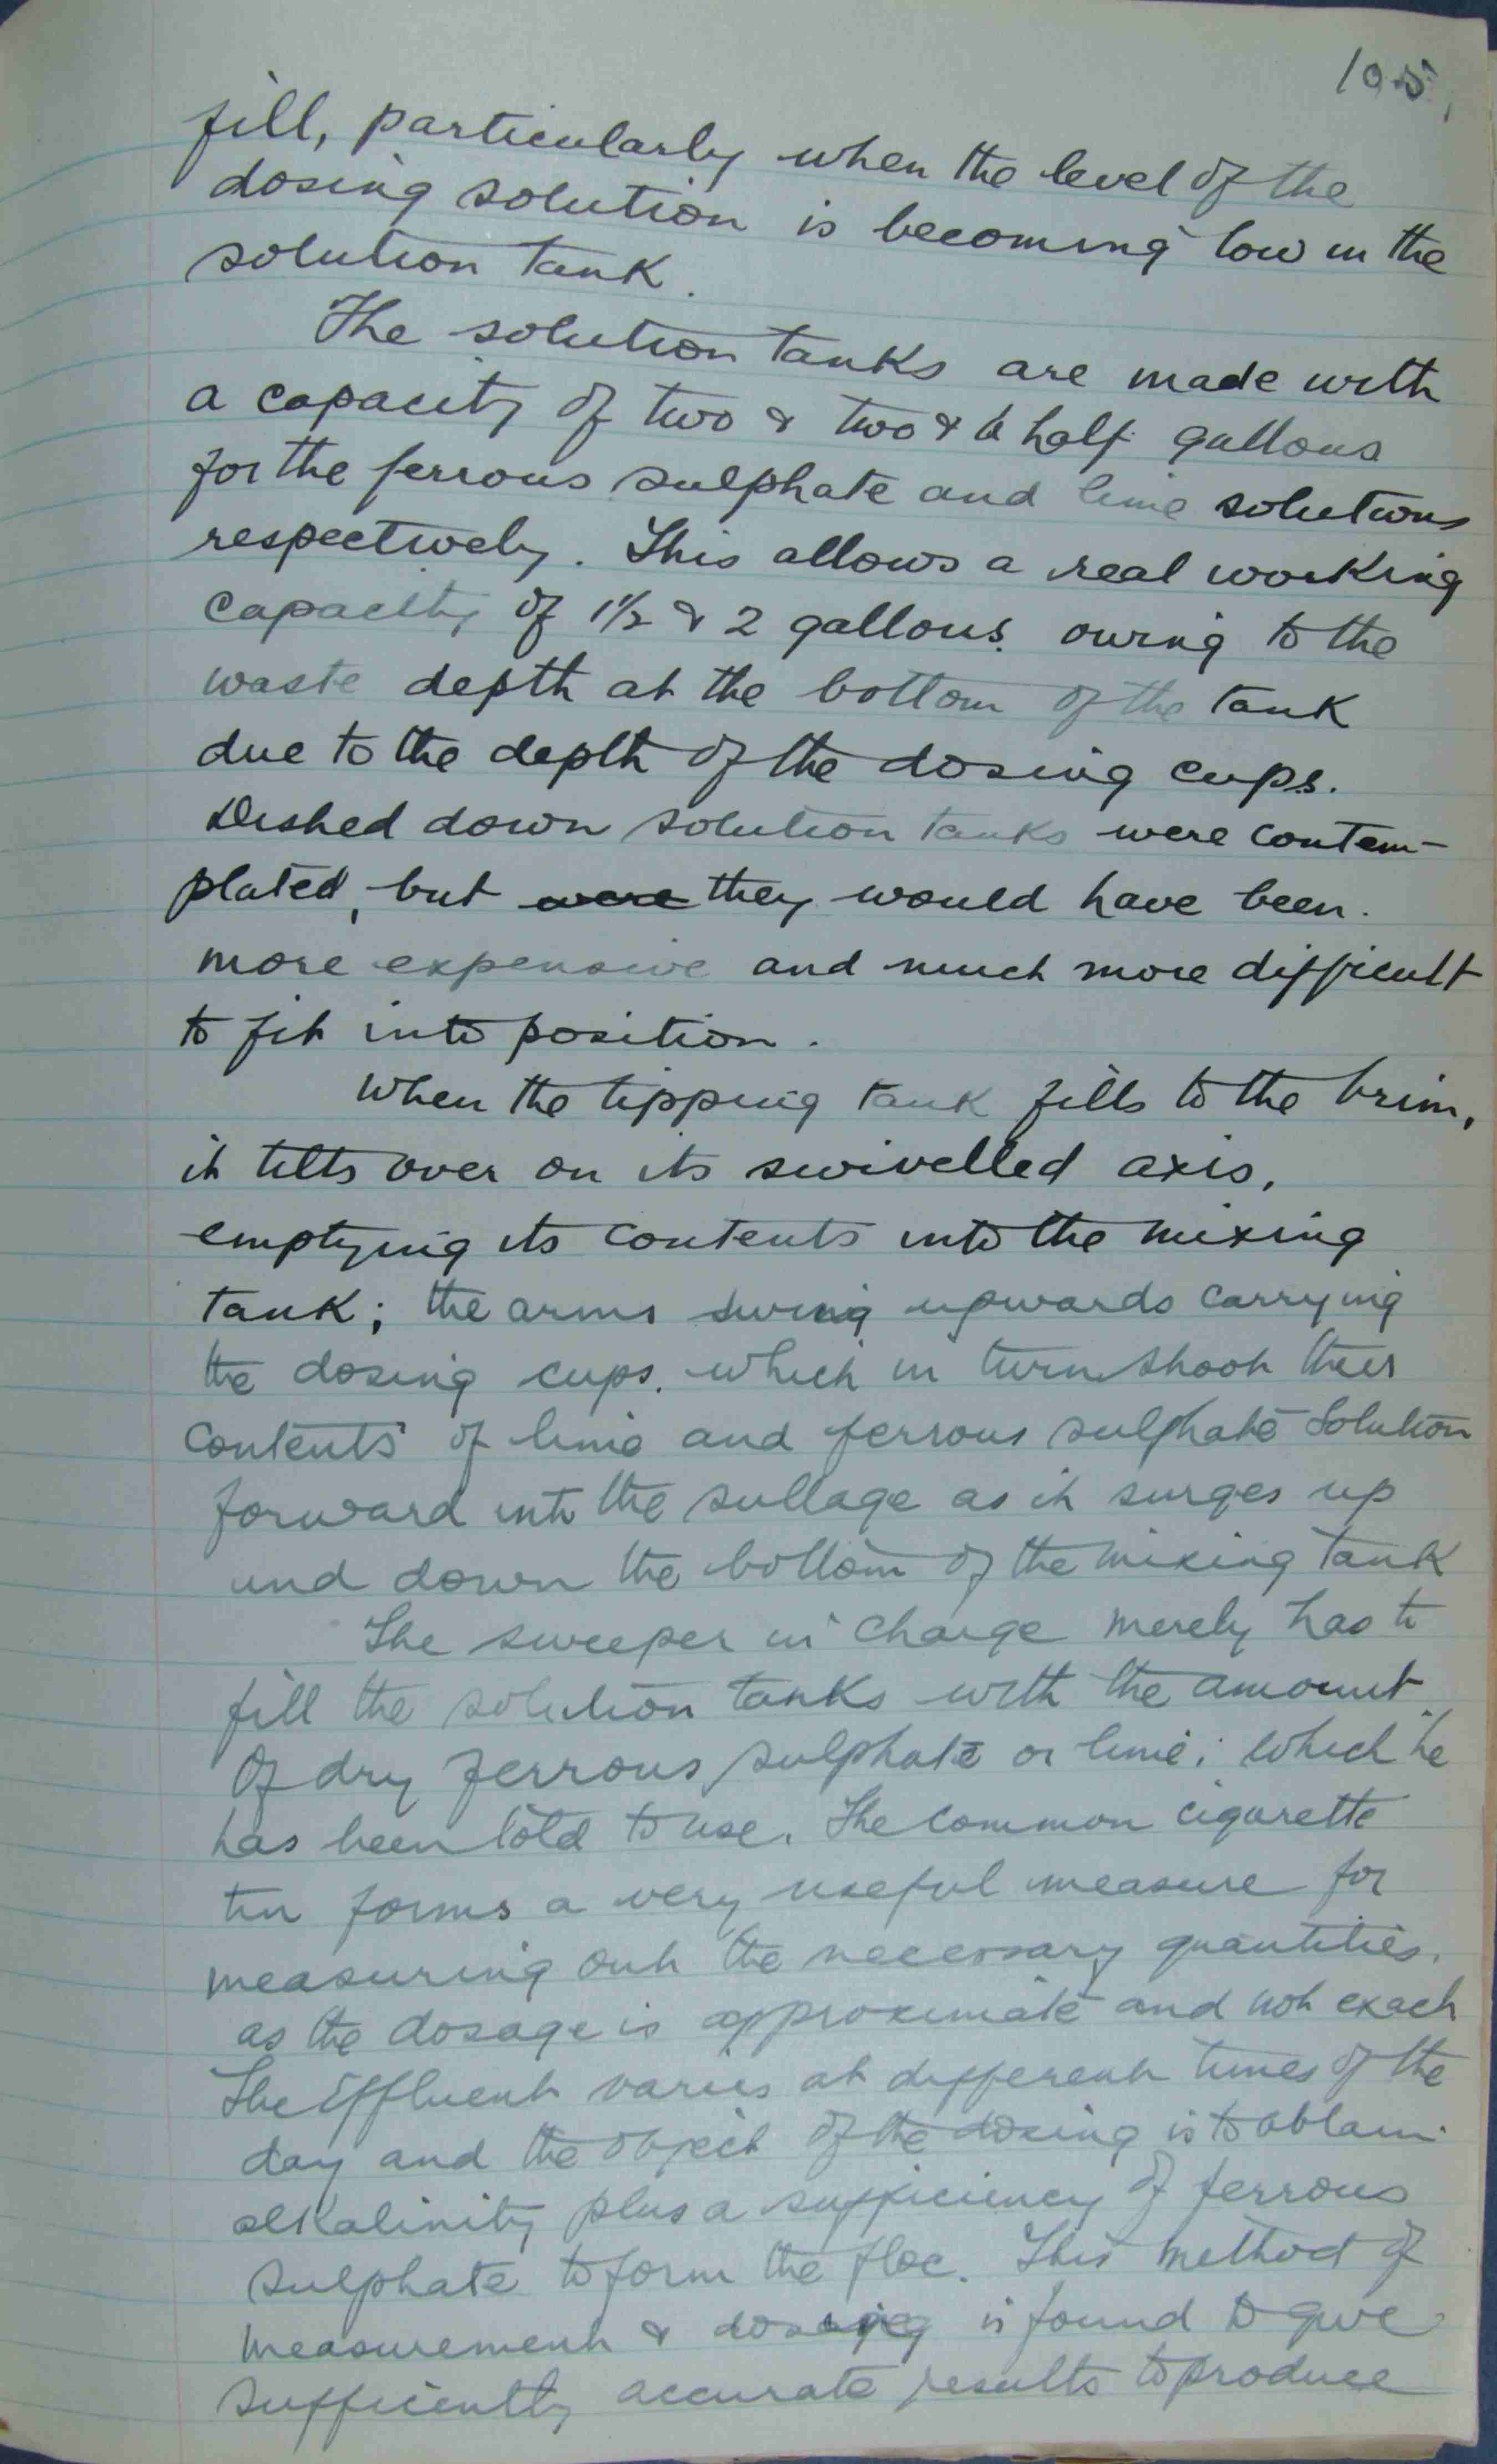 105
fill, particularly when the level of the
dosing solution is becoming low in the
solution tank.
The solution tanks are made with
a capacity of two & two & a half gallons
for the ferrous sulphate and lime solutions
respectively. This allows a real working
capacity of 1½ & 2 gallons. owing to the
waste depth at the bottom of the tank
due to the depth of the dosing cups.
Dished down solution tanks were contem-
plated, but were they would have been.
more expensive and much more difficult
to fit into position.
When the tipping tank fills to the brim,
it tilts over on its swivelled axis,
emptying its contents into the mixing
tank; the arms swing upwards carrying
the dosing cups. which in turn shoot their
contents of lime and ferrous sulphate solution
forward into the sullage as it surges up
and down the bottom of the mixing tank
The sweeper in charge merely has to
fill the solution tanks with the amount
of dry ferrous sulphate or lime; which he
has been told to use. The common cigarette
tin forms a very useful measure for
measuring out the necessary quantities.
as the dosage is approximate and not exact
The Effluent varies at different times of the
day and the object of the dosing is to obtain
alkalinity plus a sufficiency of ferrous
sulphate to form the floc. This method of
measurement & dosing is found to give
sufficiently accurate results to produce